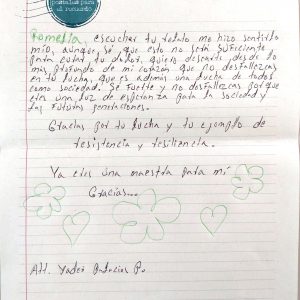 postales para
el recuerdo
Romelia, escuchar tu relato me hizo sentirlo
mío, aunque sé que esto no será suficiente
para curar tu dolor, quiero desearte desde lo
mas profundo de mi corazón que no desfallezcas
en tu lucha, que es además una lucha de todos
como sociedad. Se fuerte y no desfallezcas porque
eres una luz de esperanza para la sociedad y
las futuras generaciones.
Gracias por tu lucha y tu ejemplo de
resistencia y resiliencia.
Ya eres una maestra para mi
Gracias...
Att. Yader Palacios P.